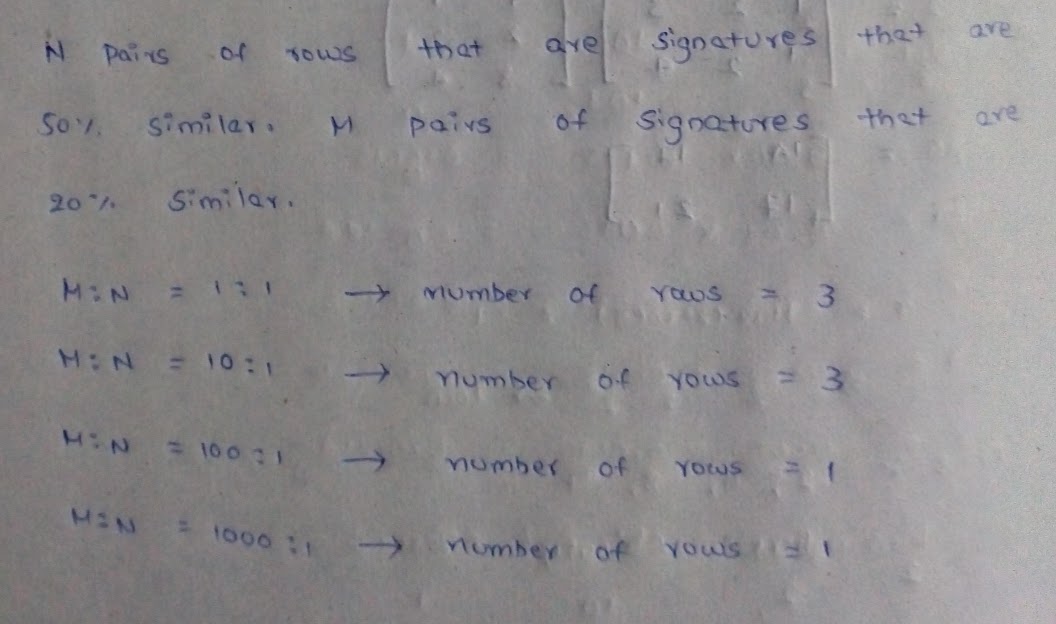 N pairs of rows that are signatures that are
50%. similar. M pairs of signatures that are
20%. similar.
M:N = 1:1 → number of rows = 3
M:N = 10:1 → number of rows = 3
M:N = 100:1 → number of rows = 1
M:N = 1000:1 → number of rows = 1